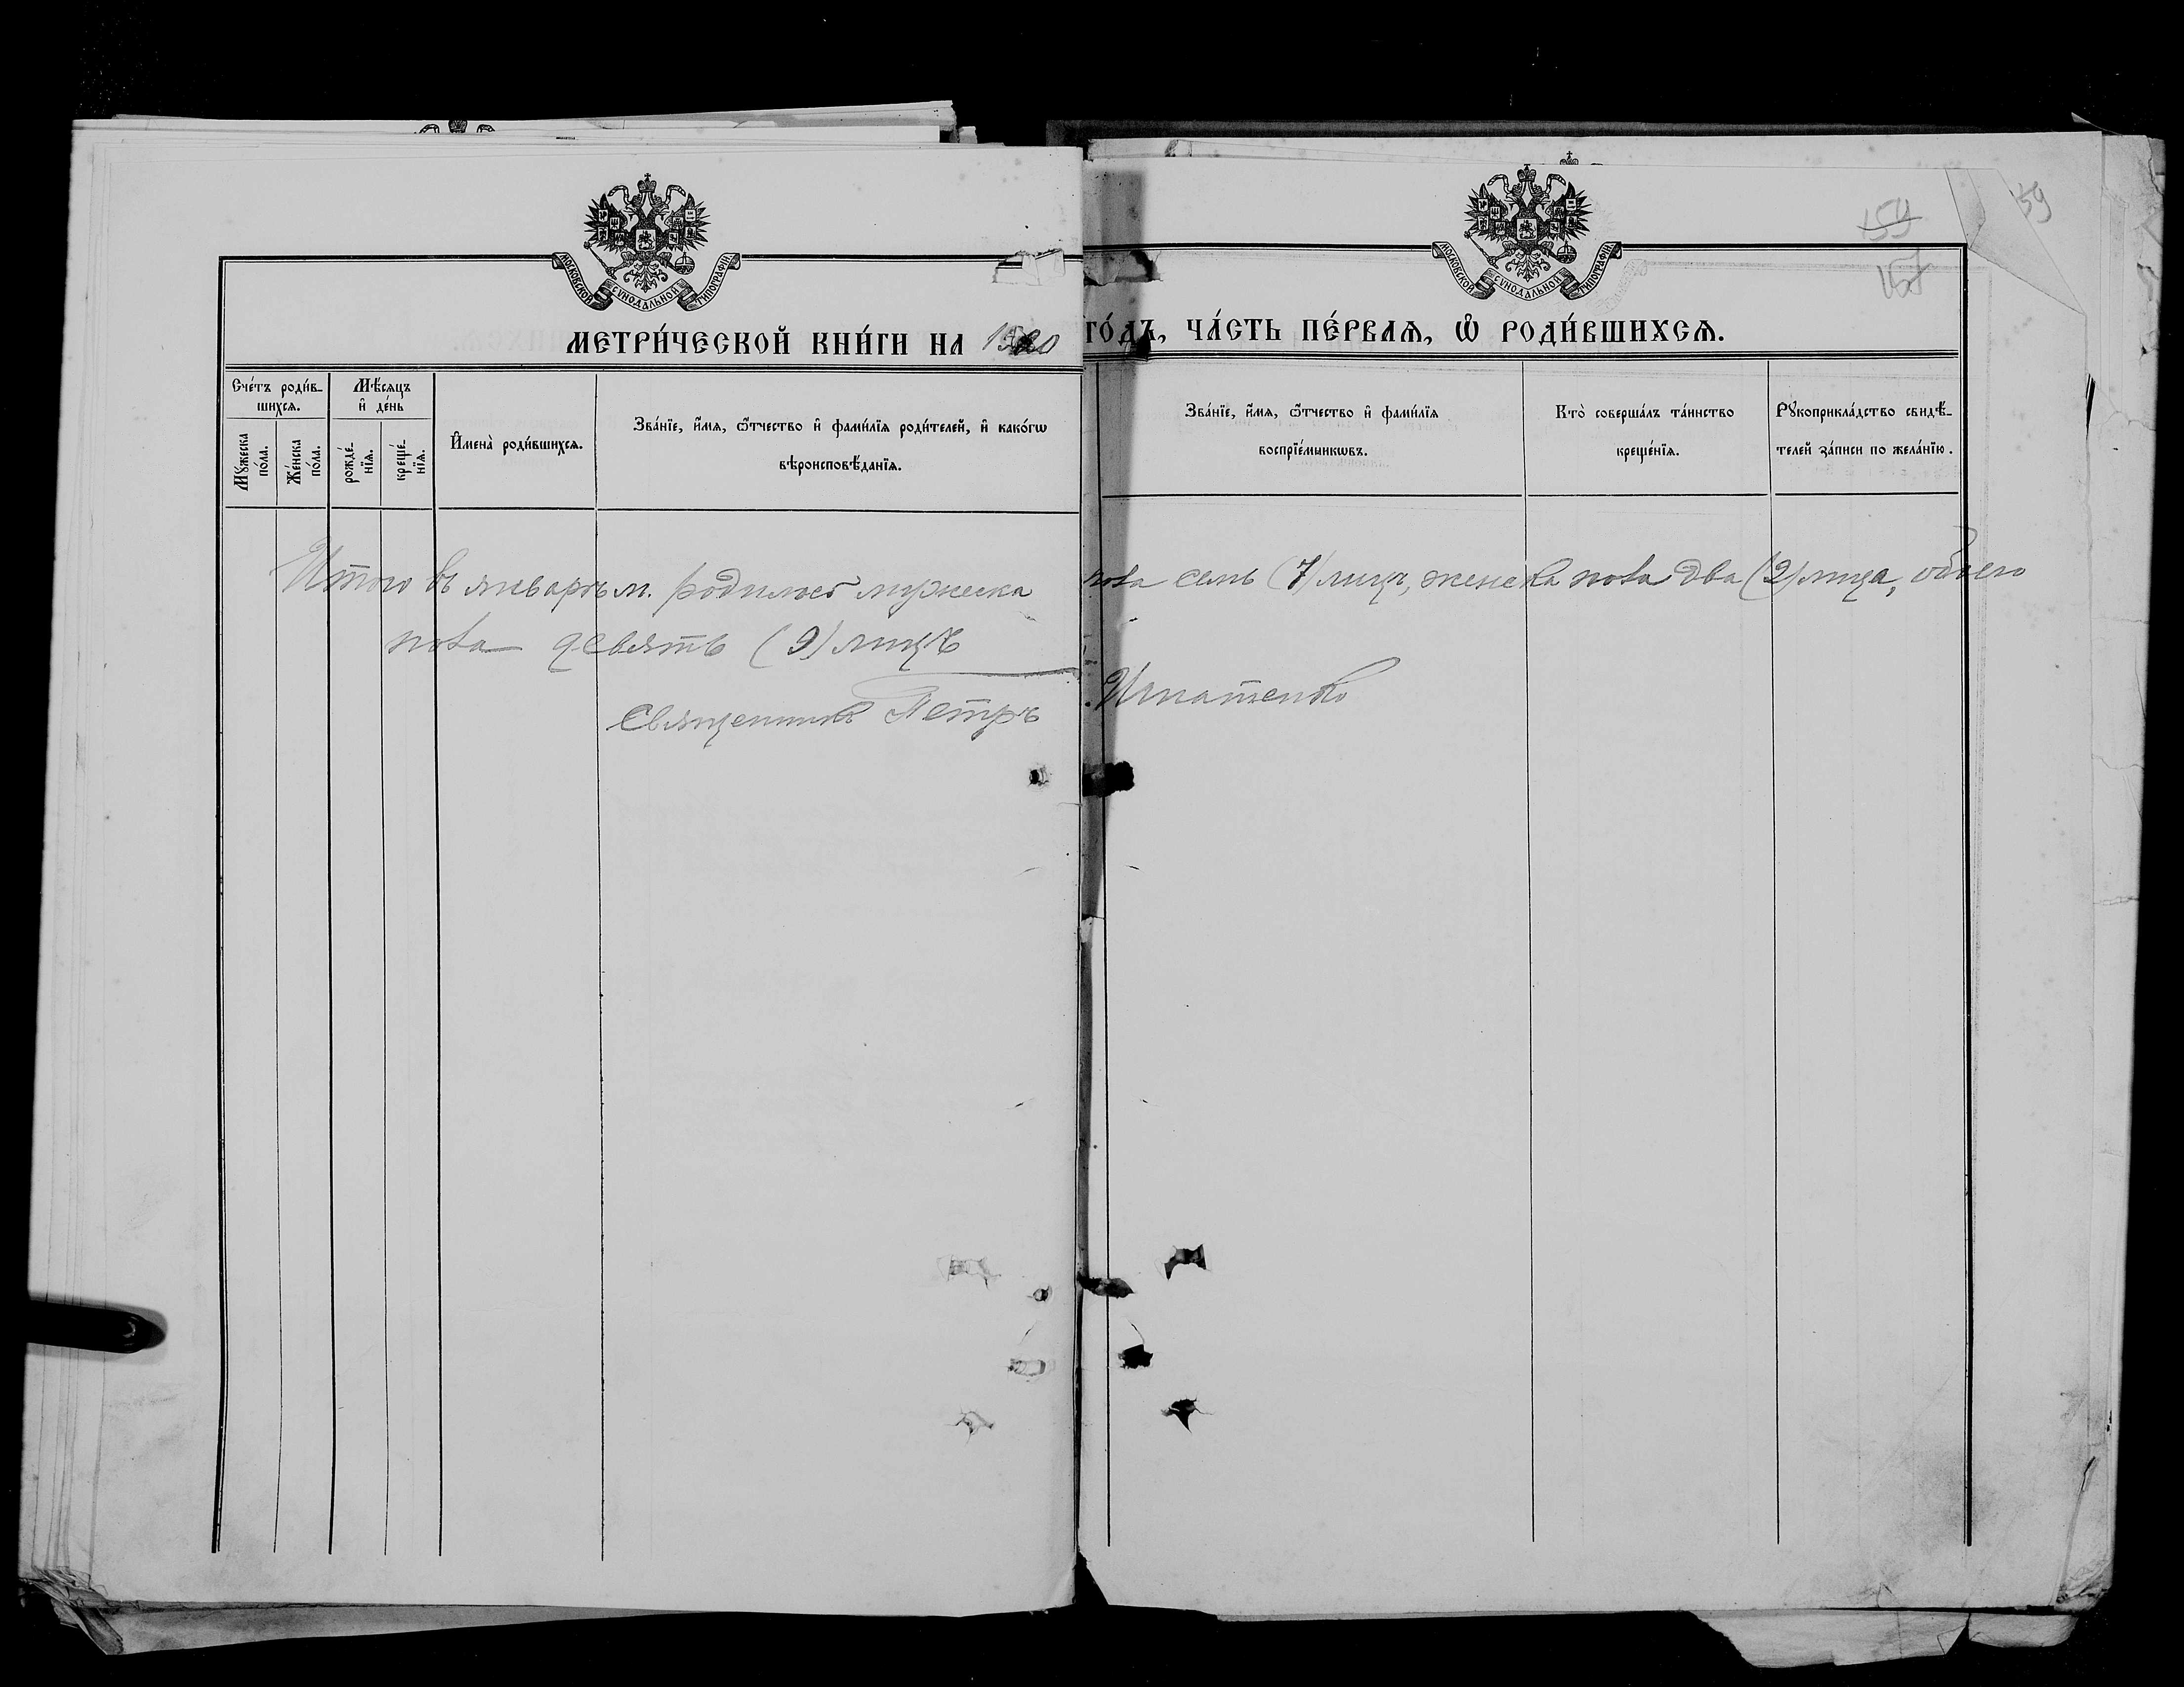 МОСКОВСКОЙ СѴНОДАЛЬНОЙ ТИПОГРАФІИ
МОСКОВСКОЙ СѴНОДАЛЬНОЙ ТИПОГРАФІИ
159
59
МЕТРИ́ЧЕСКОЙ КНИ́ГИ НА 1920 ГО́ДЪ, ЧА́СТЬ ПЕ́РВАѦ, Ѡ҆ РОДИ́ВШИХСѦ.
Сче́тъ роди́в-
шихсѧ.
Мꙋ́жеска
по́ла.
Же́нска
по́ла.
Мѣ́сѧцъ
и҆ де́нь
рожде́-
нїѧ.
креще́-
нїѧ.
И҆мена̀ роди́вшихсѧ.
Зва́нїе, и҆́мѧ, ѻ҆́тчество и҆ фами́лїѧ роди́телей, и҆ како́гѡ
вѣроисповѣ́данїѧ.
Зва́нїе, и҆́мѧ, ѻ҆́тчество и҆ фами́лїѧ
воспрїе́мникѡвъ.
Кто̀ соверша́лъ та́инство
креще́нїѧ.
Рꙋкоприкла́дство свидѣ́-
телей за́писи по жела́нїю.
Итого въ январѣ м. родилось мужеска пола семь (7) лицъ, женска пола два (2) лица, обоего
пола девять (9) лицъ
Священникъ Петръ Игнатенко